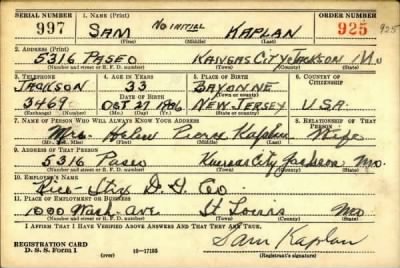 SERIAL NUMBER 1. NAME (Print) ORDER NUMBER
997 SAM NO INITIAL KAPLAN 925 925
(First) (Middle) (Last)
2. ADDRESS (Print)
5316 PASEO KANSAS CITY JACKSON MO
(Number and street or R. F. D. number) (Town) (County) (State)
3. TELEPHONE 4. AGE IN YEARS 5. PLACE OF BIRTH 6. COUNTRY OF CITIZENSHIP
JACKSON 33 BAYONNE
DATE OF BIRTH (Town or county)
3469 OCT 27 1906 NEW JERSEY U.S.A.
(Exchange) (Number) (Mo.) (Day) (Yr.) (State or country)
7. NAME OF PERSON WHO WILL ALWAYS KNOW YOUR ADDRESS 8. RELATIONSHIP OF THAT PERSON
Mrs. Helen Pierce Kaplan Wife
(Mr., Mrs., Miss) (First) (Middle) (Last)
9. ADDRESS OF THAT PERSON
5316 Paseo Kansas City Jackson Mo.
(Number and street or R. F. D. number) (Town) (County) (State)
10. EMPLOYER'S NAME
Rice-Stix D. G. Co.
11. PLACE OF EMPLOYMENT OR BUSINESS
1000 Wash. Ave St Louis Mo
(Number and street or R. F. D. number) (Town) (County) (State)
I AFFIRM THAT I HAVE VERIFIED ABOVE ANSWERS AND THAT THEY ARE TRUE.
REGISTRATION CARD Sam Kaplan
D. S. S. Form 1 (over) 16-17105 (Registrant's signature)